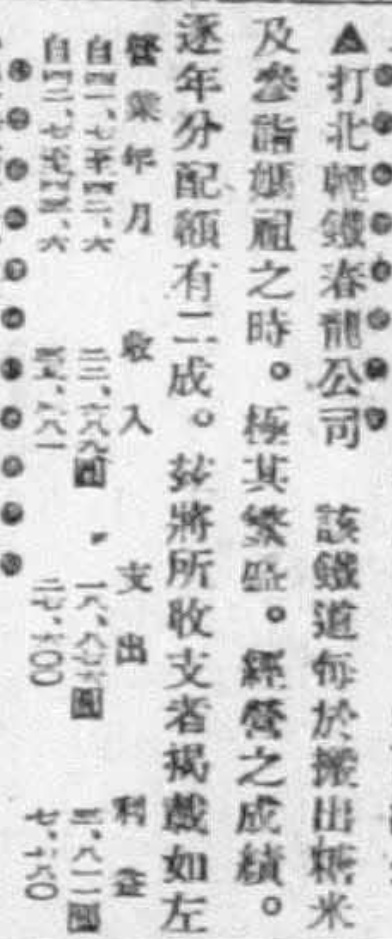 ▲打北輕鐵春龍公司　該鐵道每於搬出糖米
及參詣媽祖之時。極其繁盛。經營之成績。
逐年分配額有二成。玆將所收支者揭載如左
營業年月　收入　支出　利益
自四一、七至四二、六　二三、六八八圓　一八、八七六圓　三、八一二圓
自四二、七至四三、六